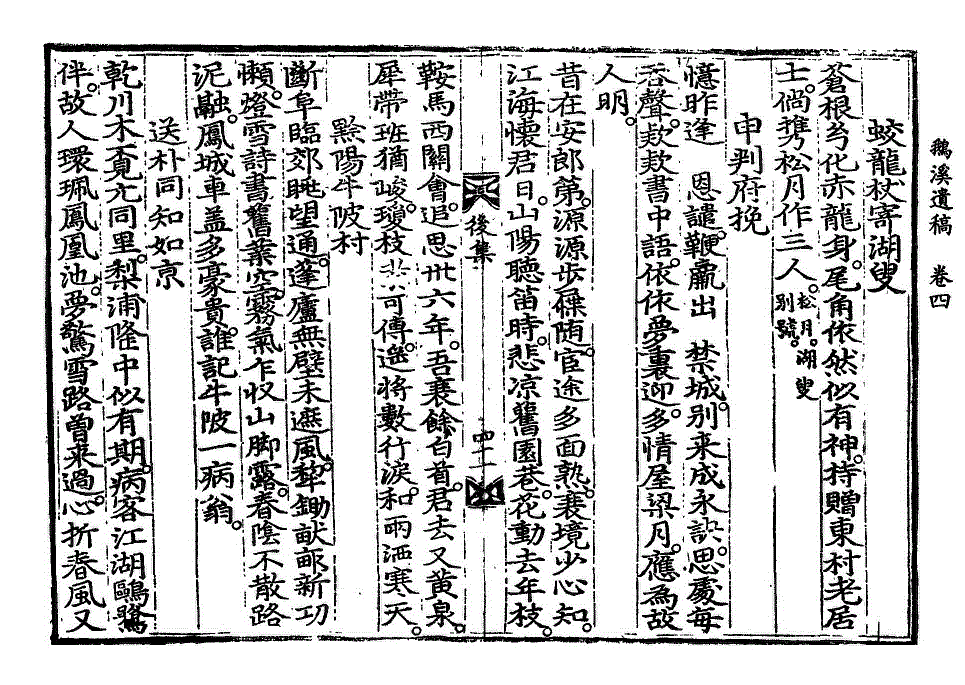 鵝溪遺稿 卷四
蛟龍杖寄湖叟
蒼根兮化赤龍身。尾角依然似有神。持贈東村老居
士。倘携松月作三人。松月。湖叟別號。
申判府挽
憶昨逢 恩譴。鞭羸出 禁城。別来成永訣。思處每
吞聲。欵欵書中語。依依夢裏迎。多情屋梁月。應為故
人明。
昔在安郎第。源源步屧随。宦途多面熟。衰境少心知。
江海懷君日。山陽聽笛時。悲凉舊園巷。花動去年枝。
後集
四十二
鞍馬西關會。追思卅六年。吾衰餘白首。君去又黃泉。
犀帶班猶峻。瓊枝 可傳。遙将數行淚。和雨洒寒天。
黔陽牛陂村
斷阜臨郊眺望通。蓬廬無壁未遮風。犂鋤畎畝新功
懶。燈雪詩書舊業空。霧氣乍収山脚露。春陰不散路
泥融。鳳城車盖多豪貴。誰記牛陂一病翁。
送朴同知如京
乾川木覔亢同里。梨浦隆中似有期。病客江湖鷗鷺
伴。故人環珮鳳凰池。夢驚雪路曾来過。心折春風又